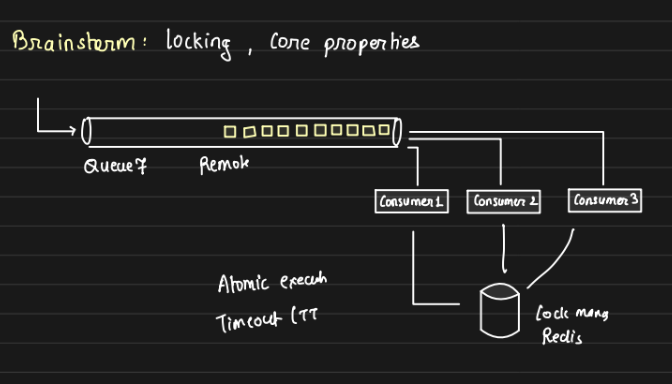 Brainstorm: locking, Core properties
Queue7
Remote
Consumer1
Consumer 2
Consumer 3
Atomic execuh
Timeout (TT
Lock mang
Redis